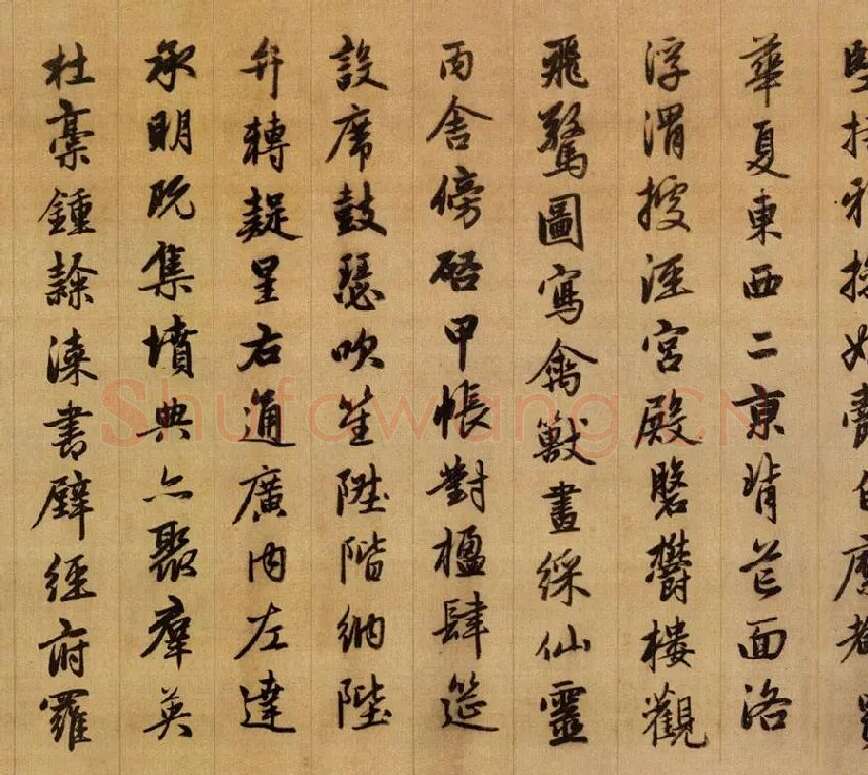 華夏東西二京背芒面洛
浮渭據涇宮殿盤鬱樓觀
飛驚圖寫禽獸畫綵仙靈
丙舍傍啓甲帳對楹肆筵
設席鼓瑟吹笙陞階納陛
弁轉疑星右通廣內左達
承明既集墳典亦聚羣英
杜稾鍾隸漆書壁經府羅
Shufawang.CN